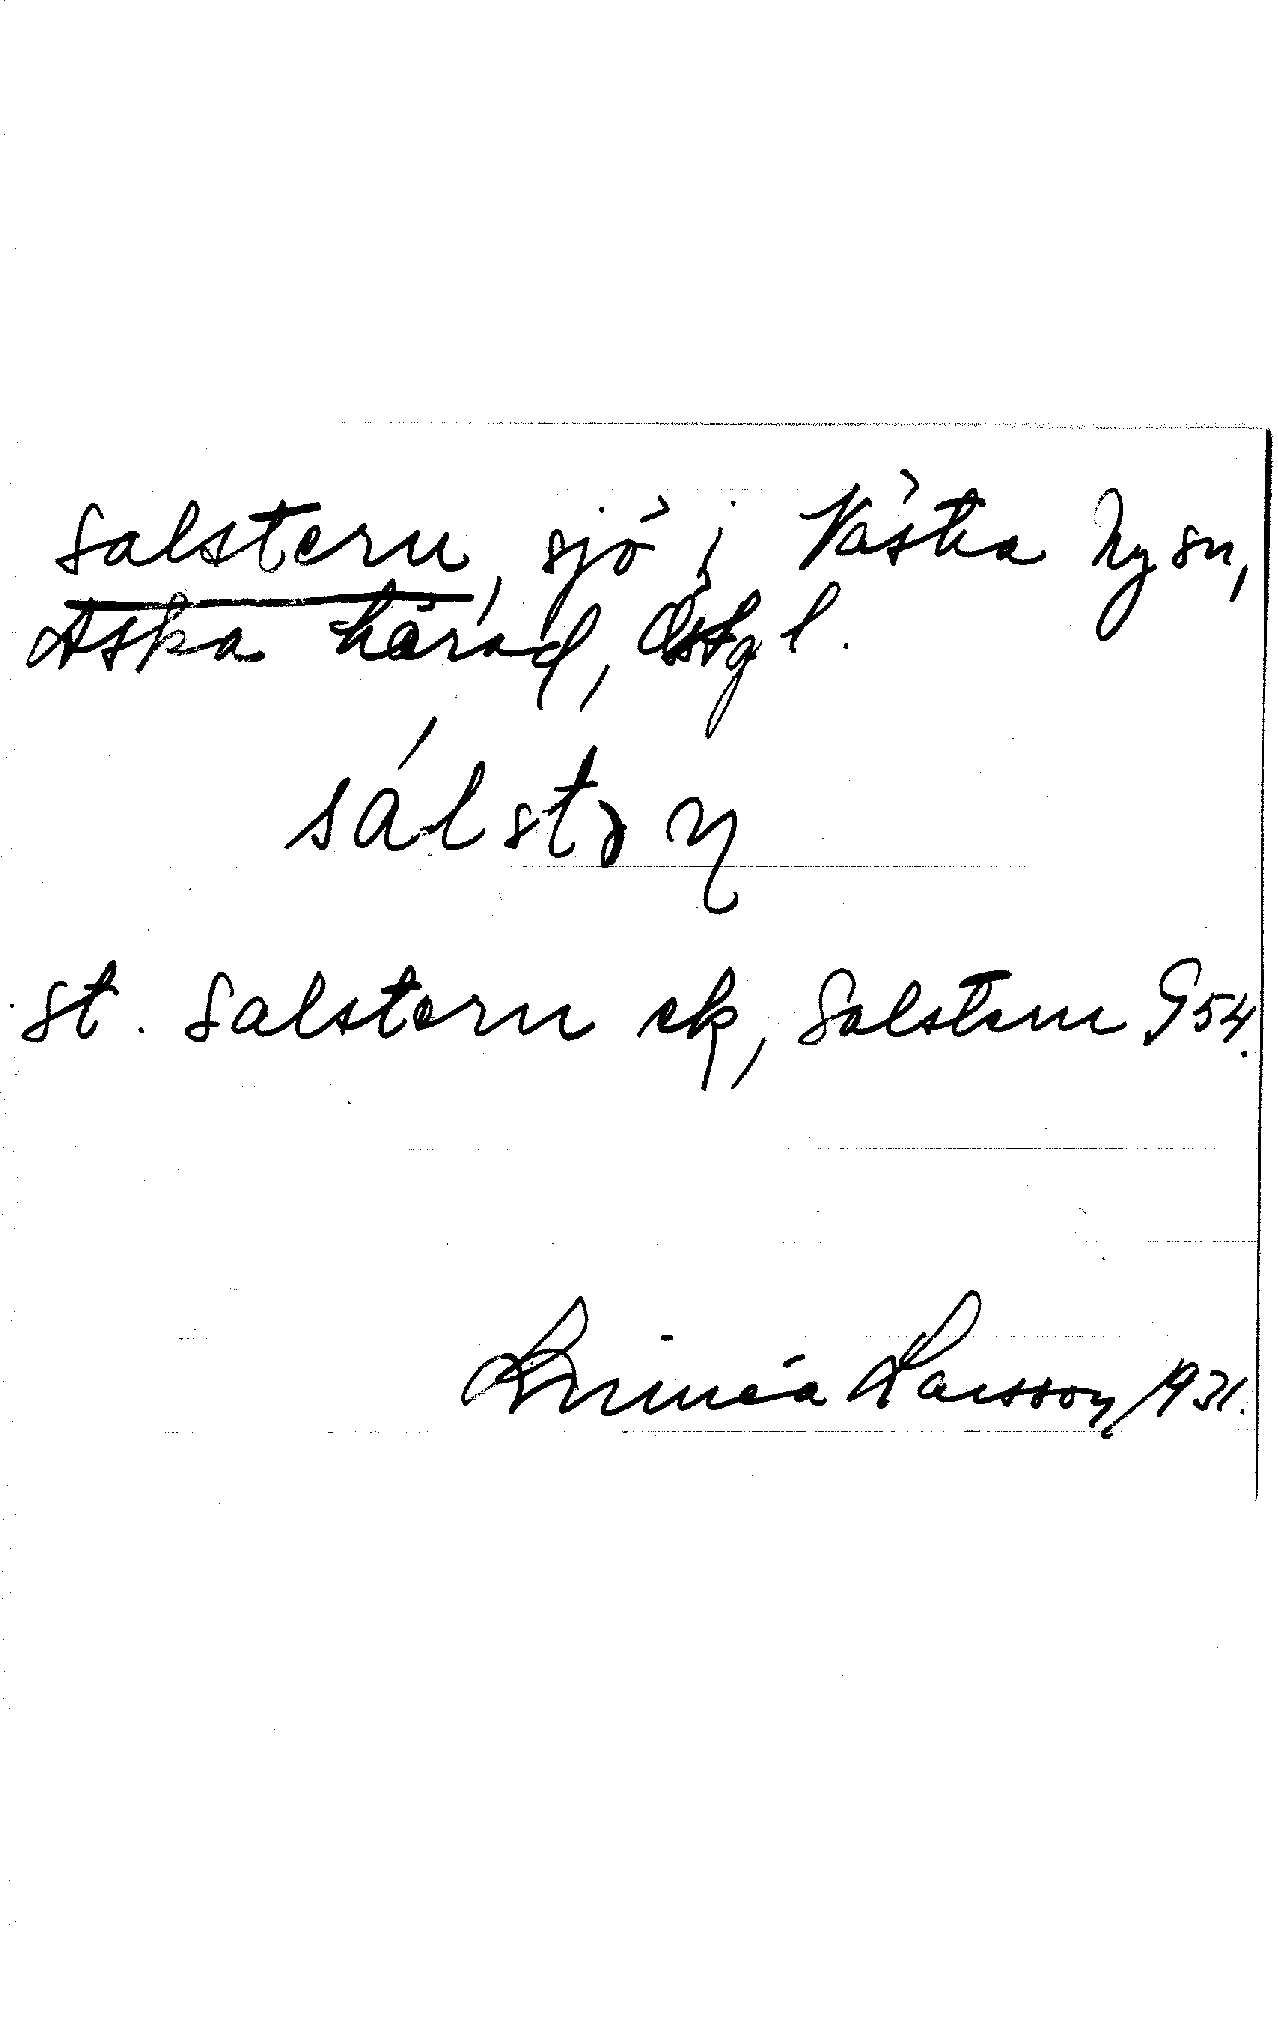 Salstern, sjö i Västra Ny sn,
Aska härad, Östgl.
sálstəɳ
St. Salstern ek, Salstern G54.
Linnéa Larsson/1931.